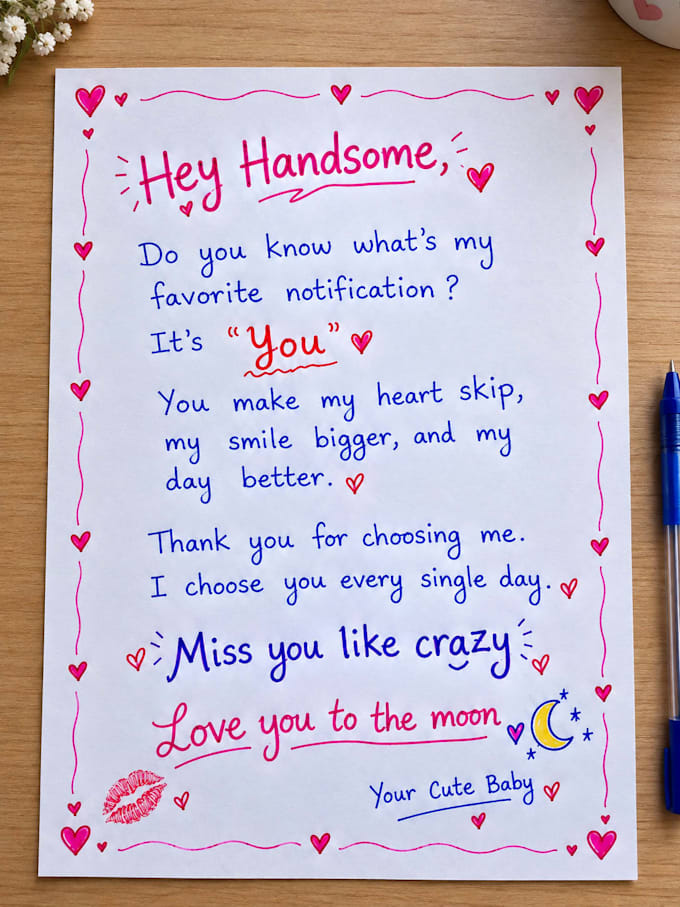 Hey Handsome,
Do you know what's my
favorite notification?
It's "You"
You make my heart skip,
my smile bigger, and my
day better.
Thank you for choosing me.
I choose you every single day.
Miss you like crazy
Love you to the moon
Your Cute Baby